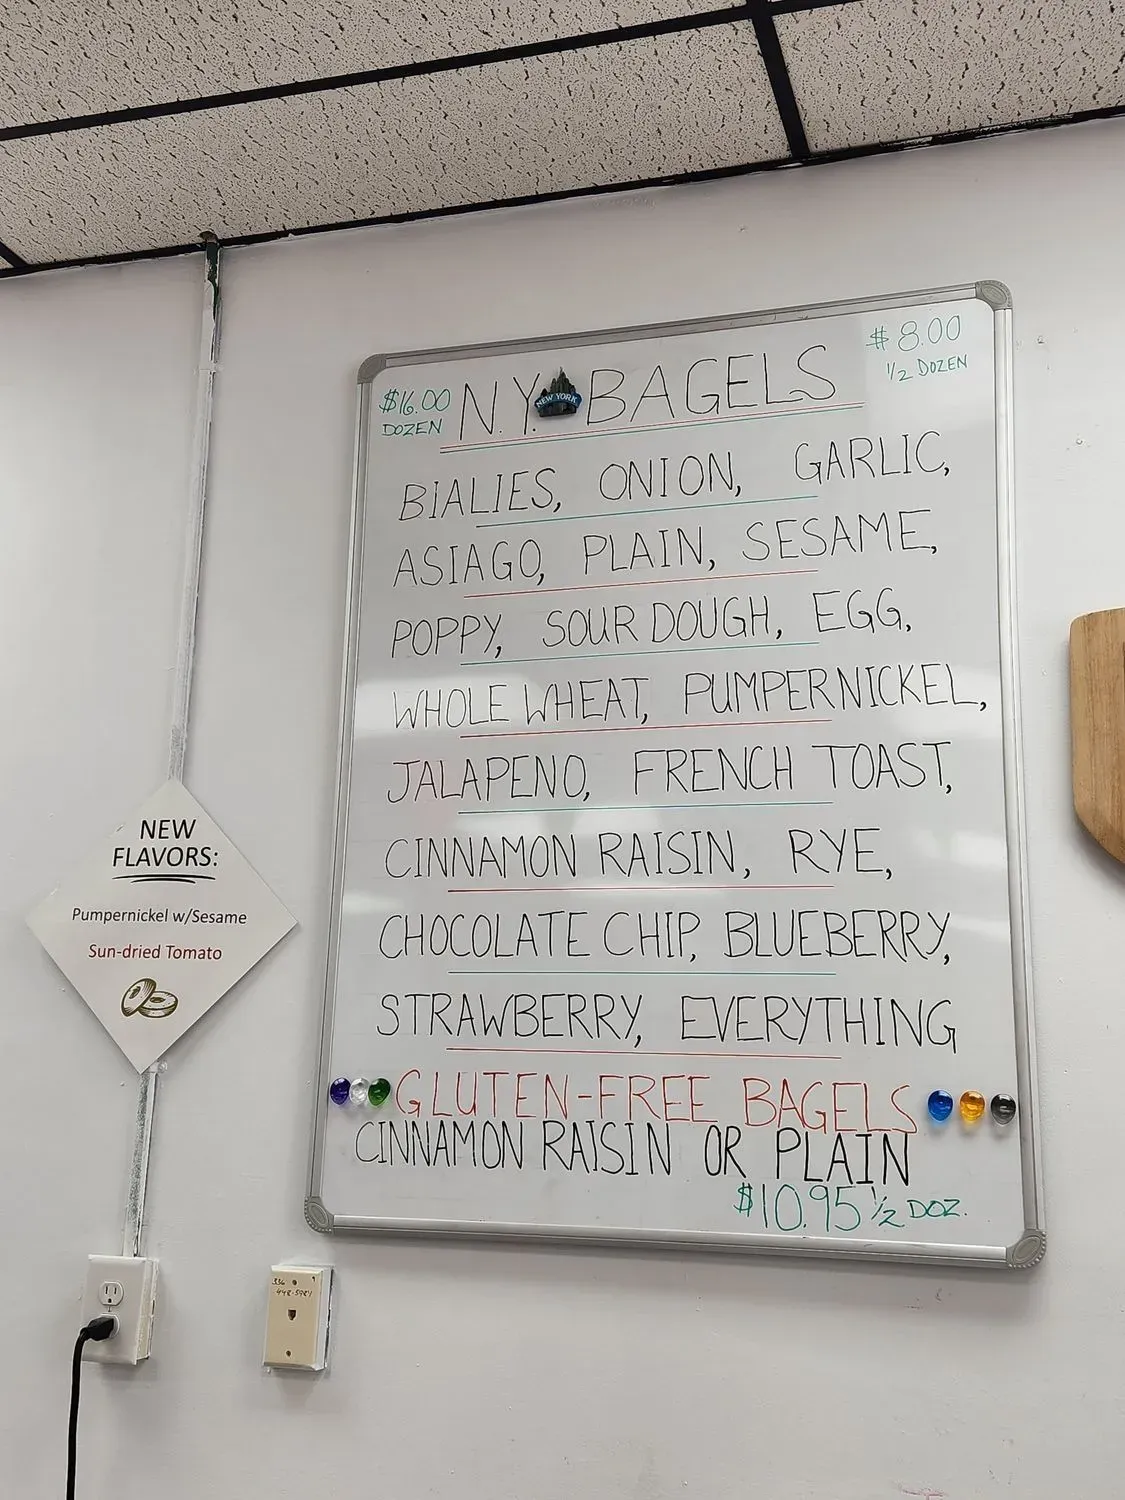 $16.00
DOZEN
N.Y. BAGELS
NEW YORK
$8.00
1/2 DOZEN
BIALIES, ONION, GARLIC,
ASIAGO, PLAIN, SESAME,
POPPY, SOUR DOUGH, EGG,
WHOLE WHEAT, PUMPERNICKEL,
JALAPENO, FRENCH TOAST,
CINNAMON RAISIN, RYE,
CHOCOLATE CHIP, BLUEBERRY,
STRAWBERRY, EVERYTHING
GLUTEN-FREE BAGELS
CINNAMON RAISIN OR PLAIN
$10.95 1/2 DOZ.
NEW
FLAVORS:
Pumpernickel w/Sesame
Sun-dried Tomato